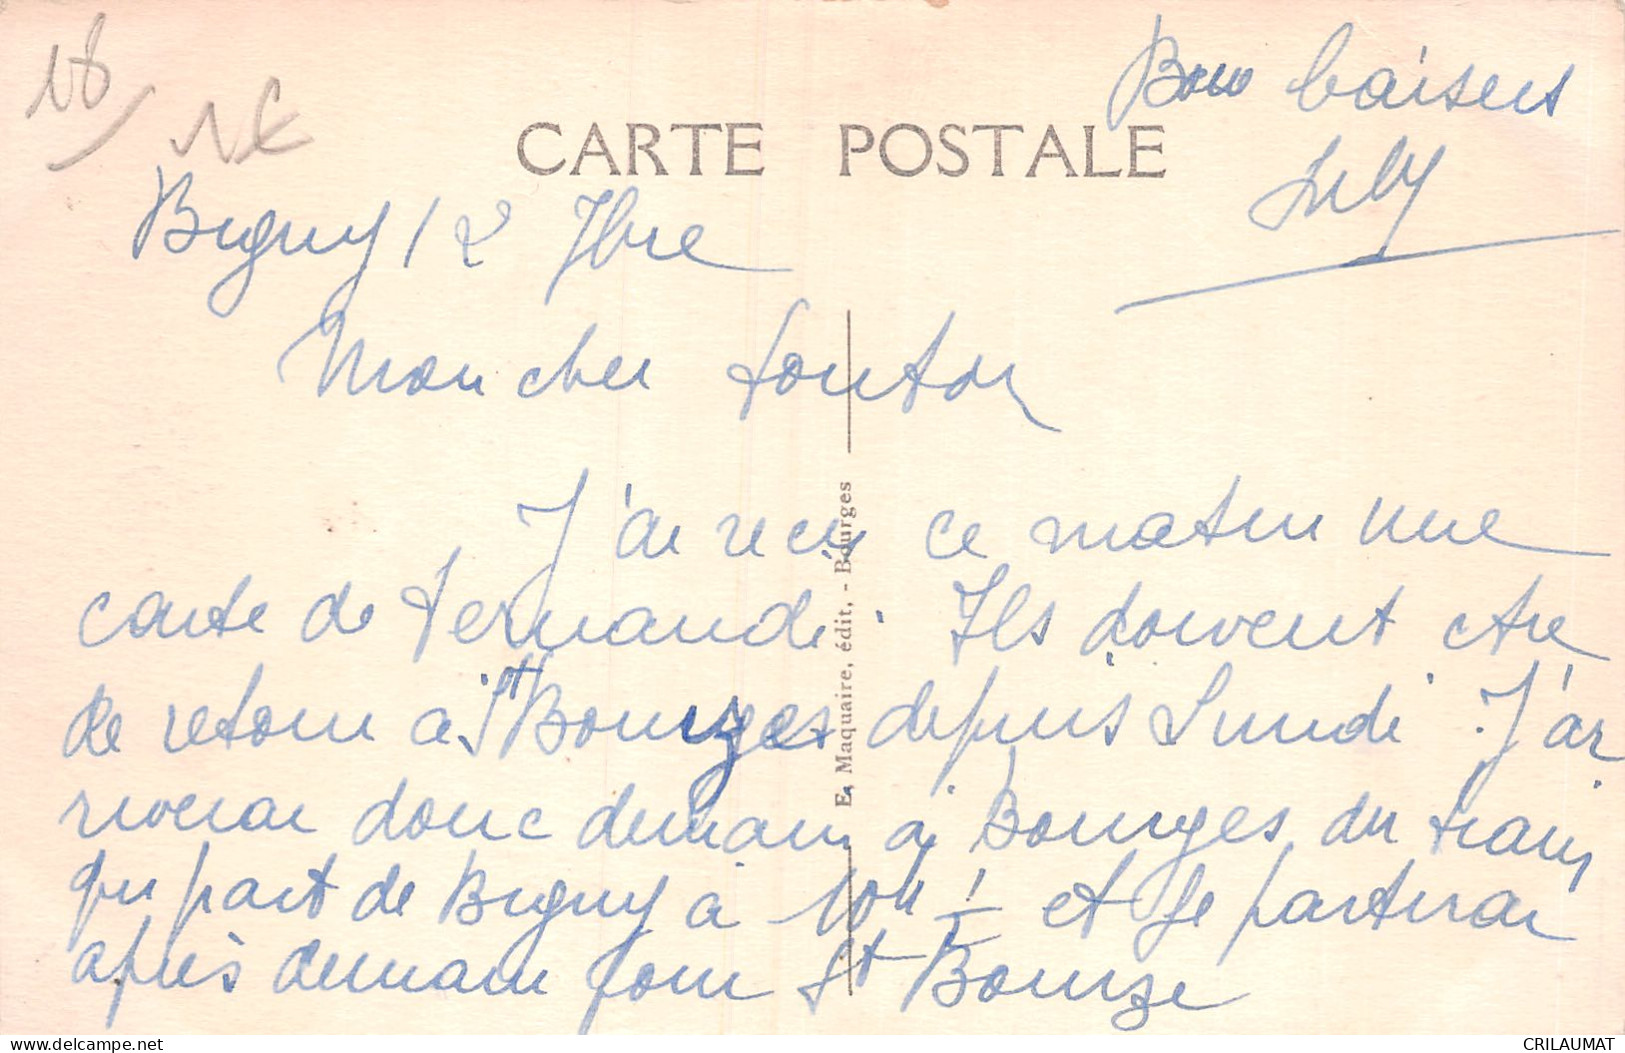 18
CARTE POSTALE
Bons baisers
Bigny 12 7bre
Mon cher tonton
J'ai reçu ce matin une
carte de Fernande. Ils doivent être
de retour à St Bourges depuis Lundi. J'ar
riverai donc demain à Bourges du train
qui part de Bigny à 10h 1/2 et je partirai
après demain pour St
E. Maquaire, édit, - Bourges
www.delcampe.net
CRILAUMAT